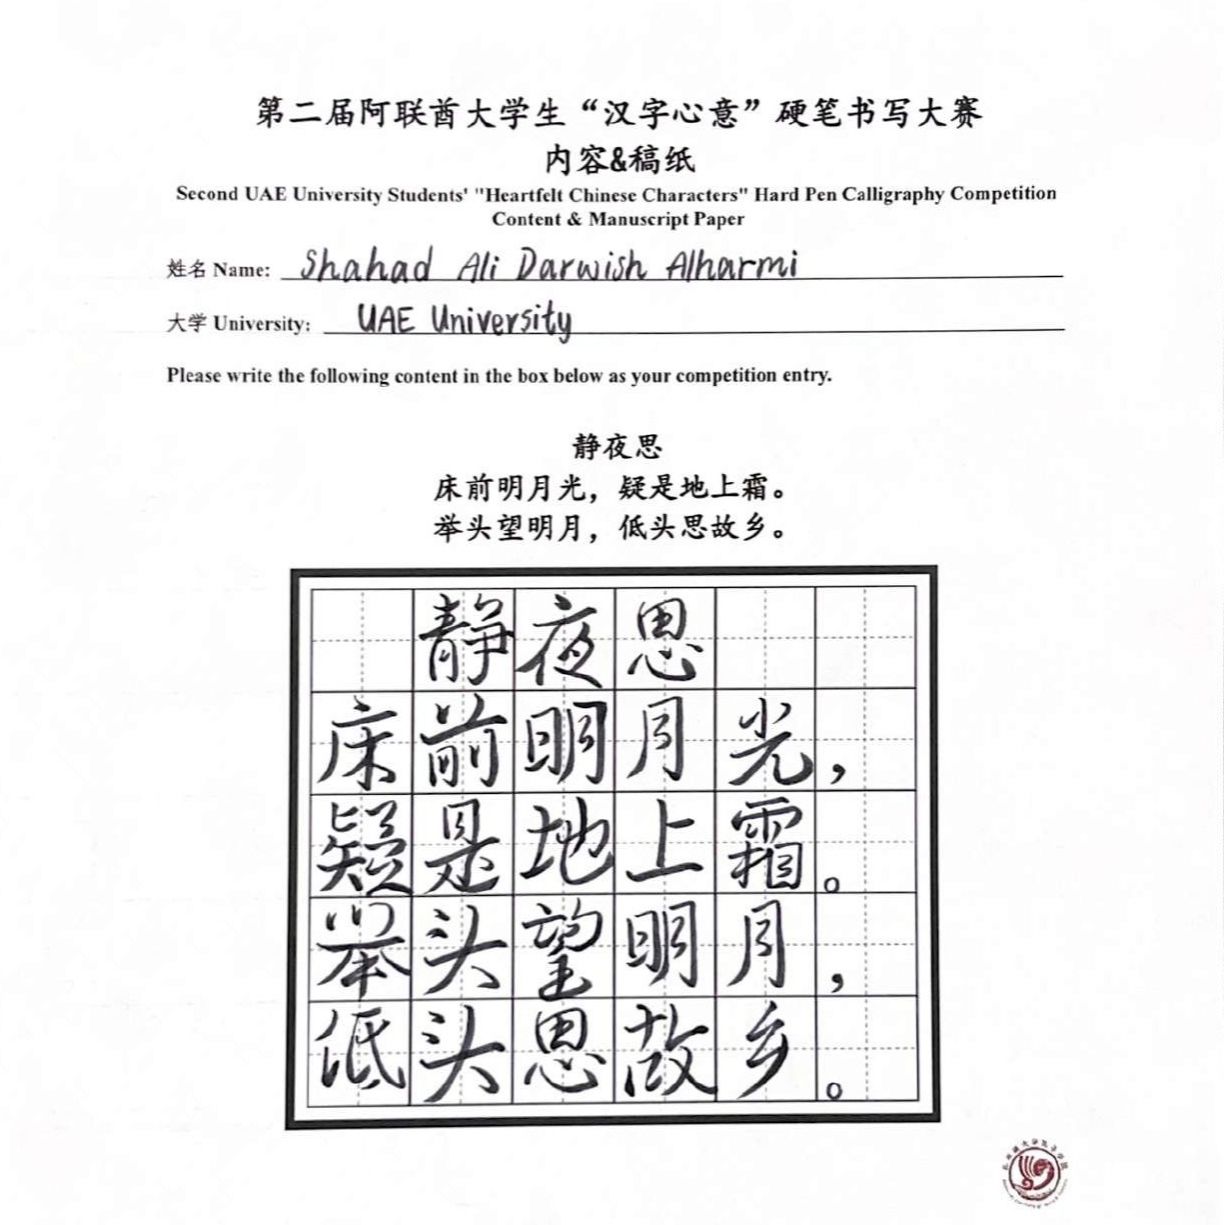 第二届阿联酋大学生“汉字心意”硬笔书写大赛
内容&稿纸
Second UAE University Students' "Heartfelt Chinese Characters" Hard Pen Calligraphy Competition
Content & Manuscript Paper
姓名 Name: Shahad Ali Darwish Alharmi
大学 University: UAE University
Please write the following content in the box below as your competition entry.
静夜思
床前明月光，疑是地上霜。
举头望明月，低头思故乡。
静夜思
床前明月光，
疑是地上霜。
举头望明月，
低头思故乡。